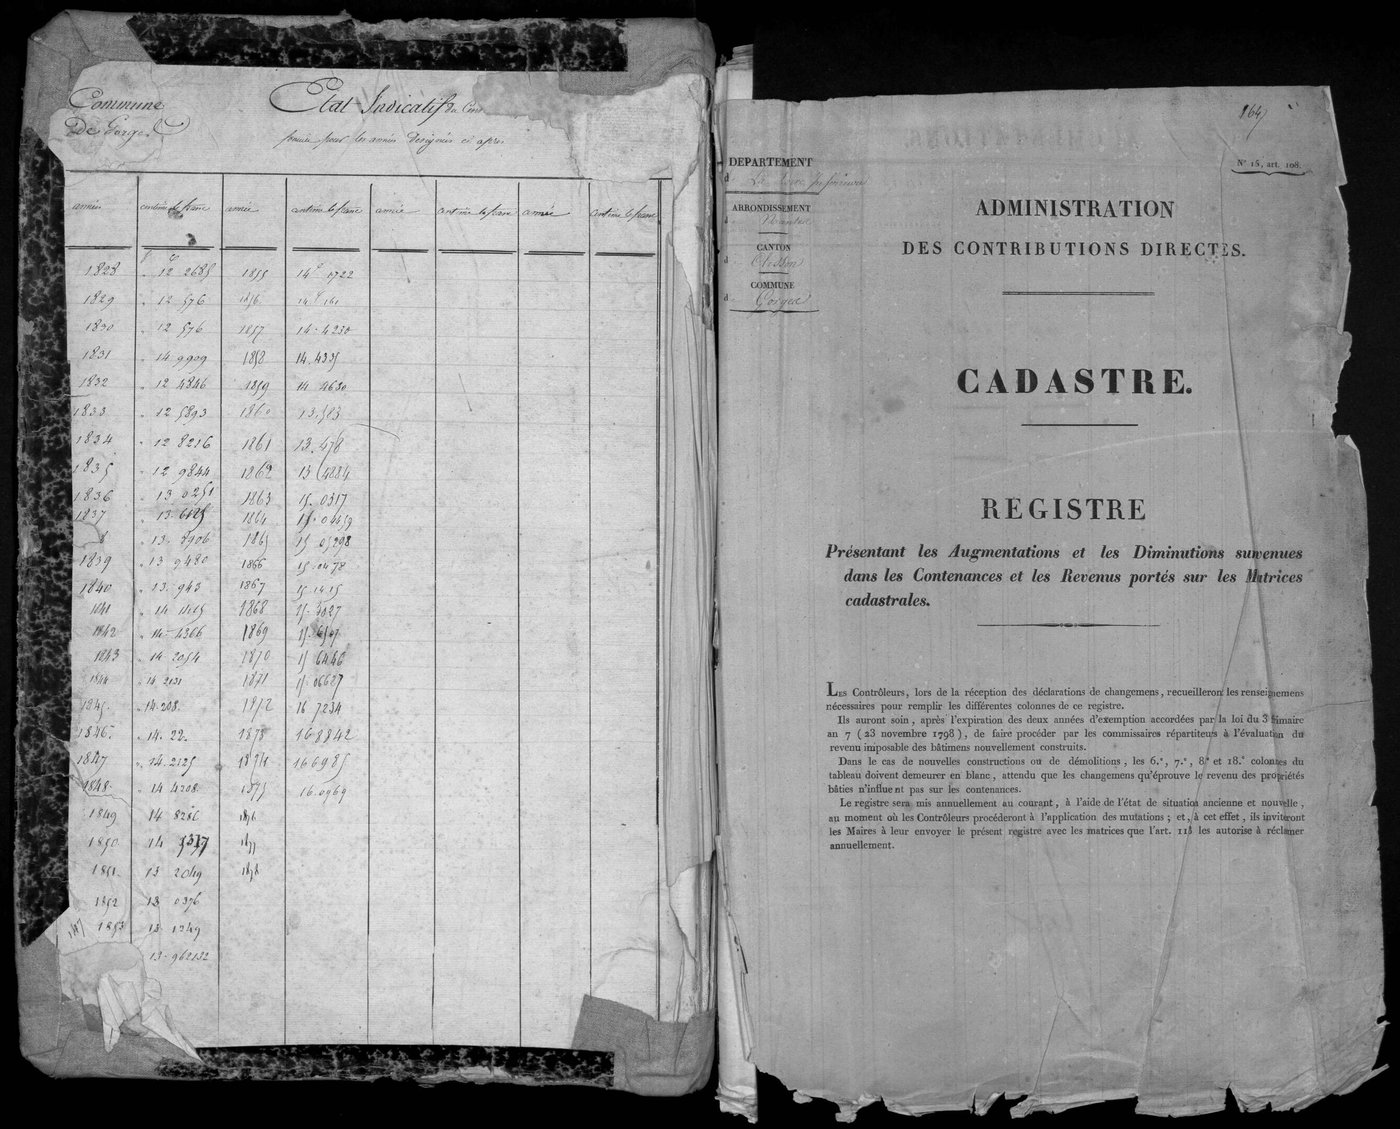 Commune
De Gorges
Etat Indicatif Du Cent
fourni pour les années Désignées ci après
année centime le franc année centime le franc année centime le franc année centime le franc
1828 12 2685 1855 14 1722
1829 12 576 1856 14 161
1830 12 576 1857 14. 4230
1831 14 9909 1858 14. 4335
1832 12 4846 1859 14 4630
1833 12 5893 1860 13. 583
1834 12 8216 1861 13. 478
1835 12 9844 1862 13 4884
1836 13 0251 1863 15. 0317
1837 13. 6125 1864 15. 04459
13. 8906 1865 15. 05298
1839 13 9480 1866 15. 0478
1840 13. 943 1867 15. 1415
1841 14 1415 1868 15. 3027
1842 14. 4366 1869 15. 6507
1843 14 2054 1870 15 6446
1844 14 2131 1871 15. 06627
1845. 14. 208. 1872 16 7234
1846. 14. 22. 1873 16. 8842
1847 14. 2125 1874 16 6985
1848. 14 4208 1875 16. 0969
1849 14 8256 1876
1850 14 5317 1877
1851. 13 2049 1878
1852 13 0376
1853 13. 1249
13. 962132
864
N° 15, art. 108.
DÉPARTEMENT
d La Loire Inférieure
ARRONDISSEMENT
d Nantes
CANTON
d Clisson
COMMUNE
d Gorges
ADMINISTRATION
DES CONTRIBUTIONS DIRECTES.
CADASTRE.
REGISTRE
Présentant les Augmentations et les Diminutions survenues
dans les Contenances et les Revenus portés sur les Matrices
cadastrales.
LES Contrôleurs, lors de la réception des déclarations de changemens, recueilleront les renseignemens
nécessaires pour remplir les différentes colonnes de ce registre.
Ils auront soin, après l'expiration des deux années d'exemption accordées par la loi du 3 frimaire
an 7 (23 novembre 1798), de faire procéder par les commissaires répartiteurs à l'évaluation du
revenu imposable des bâtimens nouvellement construits.
Dans le cas de nouvelles constructions ou de démolitions, les 6.e, 7.e, 8.e et 18.e colonnes du
tableau doivent demeurer en blanc, attendu que les changemens qu'éprouve le revenu des propriétés
bâties n'influent pas sur les contenances.
Le registre sera mis annuellement au courant, à l'aide de l'état de situation ancienne et nouvelle,
au moment où les Contrôleurs procéderont à l'application des mutations; et, à cet effet, ils inviteront
les Maires à leur envoyer le présent registre avec les matrices que l'art. 113 les autorise à réclamer
annuellement.